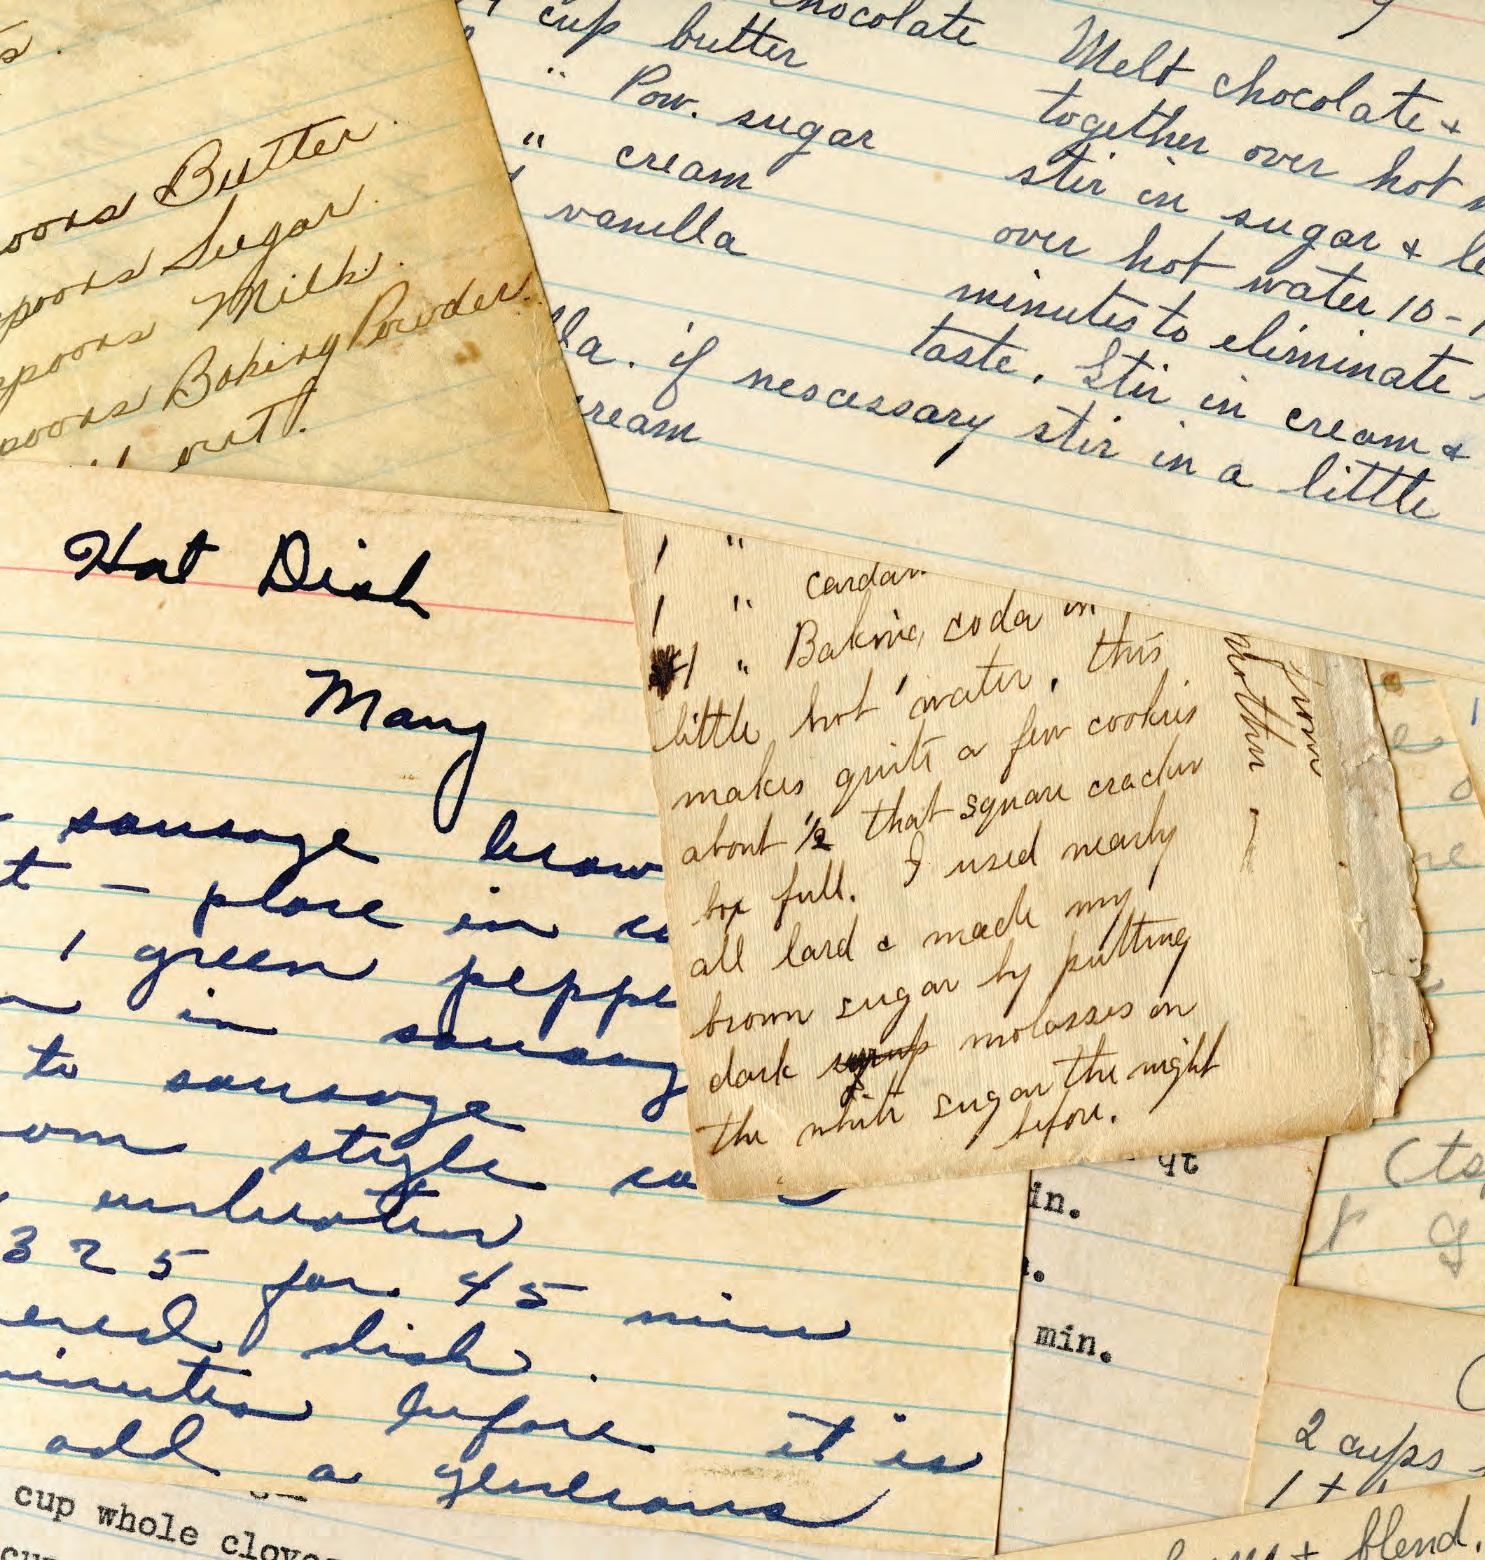 oons Butter.
spoons Sugar.
spoons Milk.
spoons Baking Powder.
out.
chocolate
cup butter
" Pow. sugar
" cream
vanilla
Melt chocolate +
together over hot
stir in sugar + le
over hot water 10-1
minutes to eliminate
taste. Stir in cream +
lla. if nescessary stir in a little
cream
Hot Dish
Mary
sausage brow
t - place in
1 green peppe
in sausag
to sausage
om style
325 for 45 min
ered dish.
minutes before it is
add a generous
1 "
1 " cardam
1 " Baking soda in
little hot water, this
makes quite a few cookies
about 1/2 that square cracker
box full. I used nearly
all lard & made my
brown sugar by putting
dark syrup molasses on
the white sugar the night
before.
from
Mother
qt
in.
min.
(ts
2 cups
1 t
blend.
cup whole cloves
cup